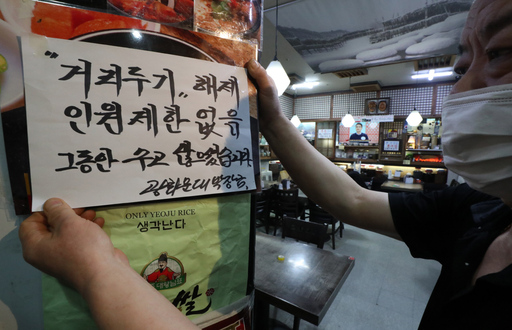 "거리두기" 해제
인원제한 없음
그동안 수고 많았습니다
광화문 대박강금
ONLY YEOJU RICE
생각난다
쌀